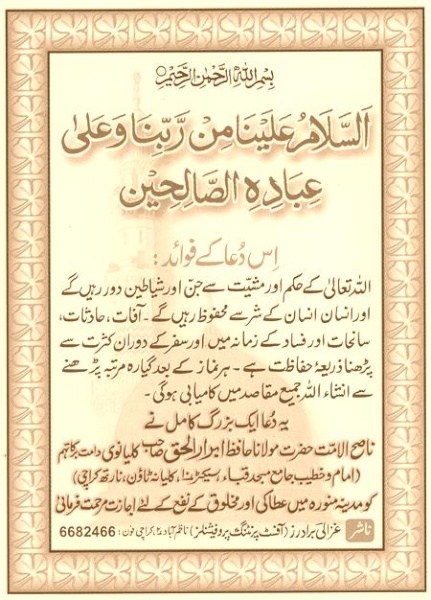 بِسْمِ اللهِ الرَّحْمٰنِ الرَّحِيْمِ
اَلسَّلَامُ عَلَيْنَا مِنْ رَّبِّنَا وَعَلٰى
عِبَادِهِ الصَّالِحِيْن
اِس دُعا کے فوائد :
اللہ تعالیٰ کے حکم اور مشیّت سے جنّ اور شیاطین دور رہیں گے
اور انسان انسان کے شر سے محفوظ رہیں گے ۔ آفات، حادثات،
سانحات اور فساد کے زمانہ میں اور سفر کے دوران کثرت سے
پڑھنا ذریعۂ حفاظت ہے ۔ ہر نماز کے بعد گیارہ مرتبہ پڑھنے
سے انشاء اللہ جمیع مقاصد میں کامیابی ہوگی ۔
یہ دُعا ایک بزرگ کامل نے
ناصح الامّت حضرت مولانا حافظ ابرار الحق صاحب کلیانوی دامت برکاتہم
(امام و خطیب جامع مسجد قباء، سیکٹر، کلیانہ ٹاؤن، نارتھ کراچی)
کو مدینہ منورہ میں عطا کی اور مخلوق کے نفع کے لئے اجازت مرحمت فرمائی
ناشر غزالی برادرز (آفسٹ پرنٹنگ پروفیشنلز) ناظم آباد کراچی فون : 6682466